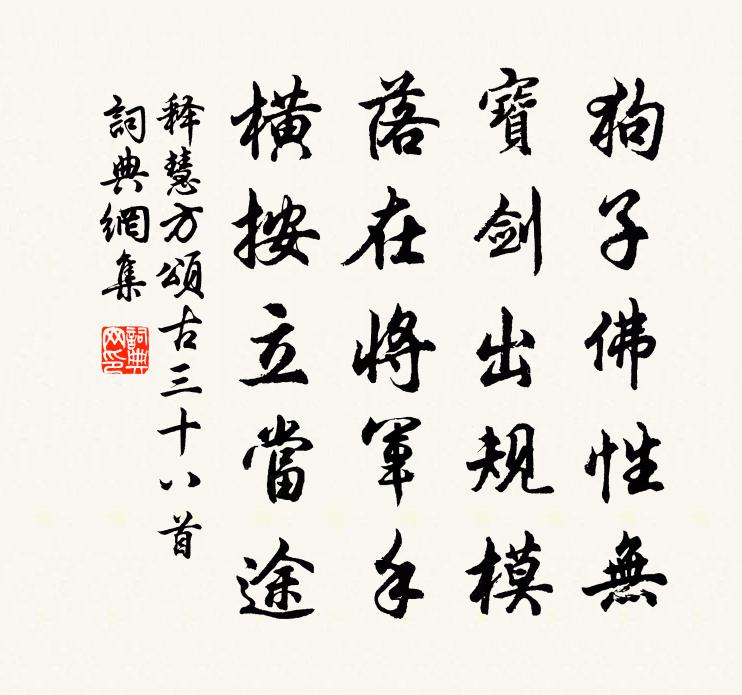 狗子佛性無
寶劍出規模
落在將軍手
橫按立當途
释慧方頌古三十八首
詞典網集
詞典網印